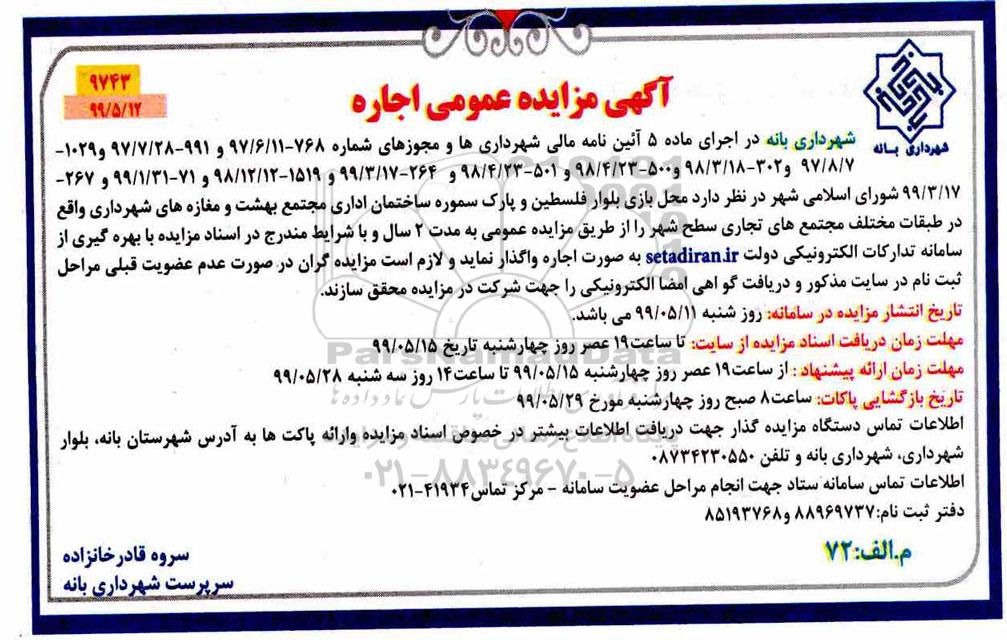 ۹۷۴۳
۹۹/۵/۱۲
آگهی مزایده عمومی اجاره
شهرداری بانه
شهرداری بانه در اجرای ماده ۵ آئین نامه مالی شهرداری ها و مجوزهای شماره ۷۶۸-۹۷/۶/۱۱ و ۹۹۱-۹۷/۷/۲۸ و۱۰۲۹-
۹۷/۸/۷ و۳۰۲-۹۸/۳/۱۸ و۵۰۰-۹۸/۴/۲۳ و ۵۰۱-۹۸/۴/۲۳ و ۲۶۴-۹۹/۳/۱۷ و ۱۵۱۹-۹۸/۱۲/۱۲ و ۷۱-۹۹/۱/۳۱ و ۲۶۷-
۹۹/۳/۱۷ شورای اسلامی شهر در نظر دارد محل بازی بلوار فلسطین و پارک سموره ساختمان اداری مجتمع بهشت و مغازه های شهرداری واقع
در طبقات مختلف مجتمع های تجاری سطح شهر را از طریق مزایده عمومی به مدت ۲ سال و با شرایط مندرج در اسناد مزایده با بهره گیری از
سامانه تدارکات الکترونیکی دولت setadiran.ir به صورت اجاره واگذار نماید و لازم است مزایده گران در صورت عدم عضویت قبلی مراحل
ثبت نام در سایت مذکور و دریافت گواهی امضا الکترونیکی را جهت شرکت در مزایده محقق سازند.
تاریخ انتشار مزایده در سامانه: روز شنبه ۹۹/۰۵/۱۱ می باشد.
مهلت زمان دریافت اسناد مزایده از سایت: تا ساعت۱۹ عصر روز چهارشنبه تاریخ ۹۹/۰۵/۱۵
مهلت زمان ارائه پیشنهاد: از ساعت۱۹ عصر روز چهارشنبه ۹۹/۰۵/۱۵ تا ساعت۱۴ روز سه شنبه ۹۹/۰۵/۲۸
تاریخ بازگشایی پاکات: ساعت۸ صبح روز چهارشنبه مورخ ۹۹/۰۵/۲۹
اطلاعات تماس دستگاه مزایده گذار جهت دریافت اطلاعات بیشتر در خصوص اسناد مزایده وارائه پاکت ها به آدرس شهرستان بانه، بلوار
شهرداری، شهرداری بانه و تلفن ۰۸۷۳۴۲۳۰۵۵۰
اطلاعات تماس سامانه ستاد جهت انجام مراحل عضویت سامانه - مرکز تماس۴۱۹۳۴-۰۲۱
دفتر ثبت نام:۸۸۹۶۹۷۳۷ و۸۵۱۹۳۷۶۸
م.الف:۷۲
سروه قادرخانزاده
سرپرست شهرداری بانه
ParsNamadData
۰۲۱-۸۸۳۴۹۶۷۰-۵